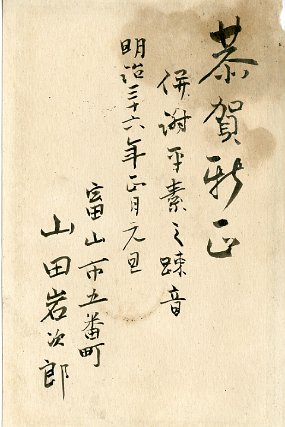 恭賀新正
併謝平素之疎音
明治三十六年正月元旦
富山市五番町
山田岩次郎